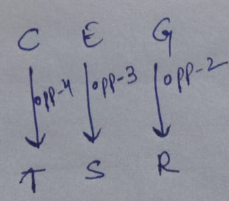 C E G
opp-4 opp-3 opp-2
T S R